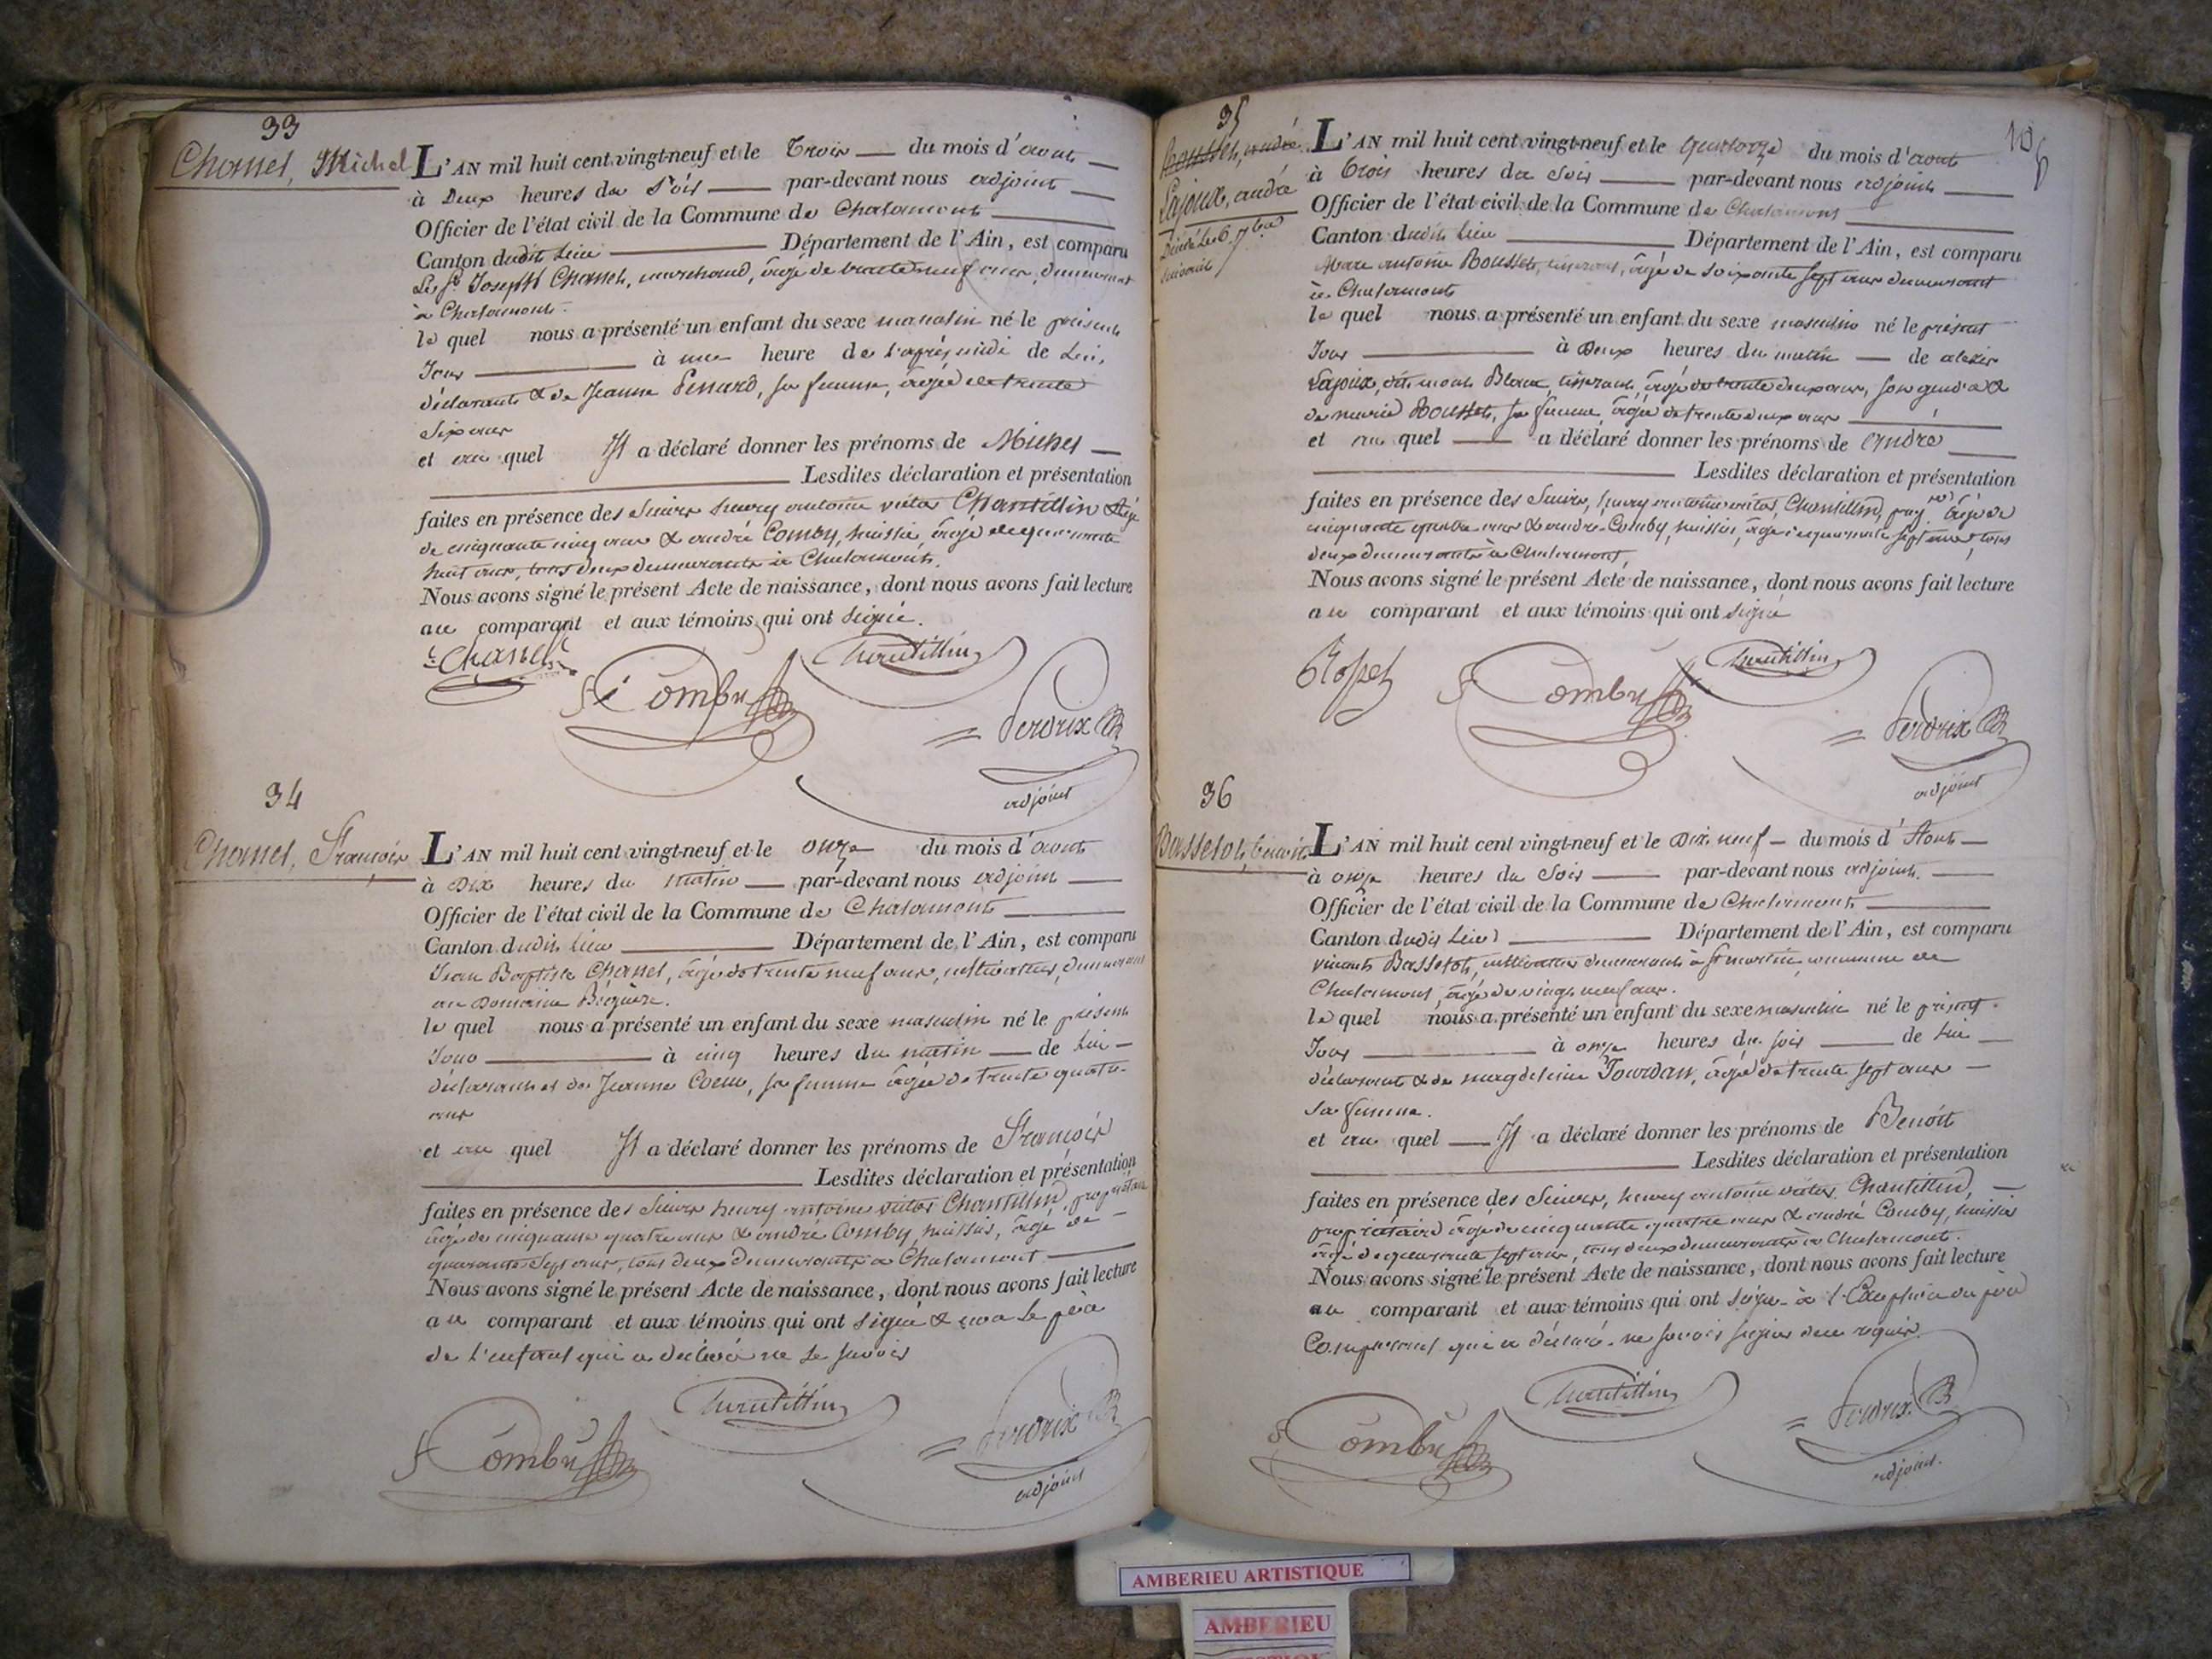 33
Chanel, Michel
L'AN mil huit cent vingt-neuf et le Trois du mois d'aout
à Deux heures du Soir par-devant nous adjoint
Officier de l'état civil de la Commune de Chalamont
Canton dudit lieu Département de l'Ain, est comparu
Le Sr Joseph Chanel, marchand, âgé de trente neuf ans, demeurant
à Chalamont.
le quel nous a présenté un enfant du sexe masculin né le présent
Jour à une heure de l'après midi de Lui,
déclarant & de Jeanne, sa femme, âgée de trente
Six ans
et au quel Il a déclaré donner les prénoms de Michel
Lesdites déclaration et présentation
faites en présence des Sieurs henry antoine victor Chantillin âgé
de cinquante cinq ans & andré Comby, huissier, âgé de quarante
huit ans, tous deux demeurants à Chalamont.
Nous avons signé le présent Acte de naissance, dont nous avons fait lecture
au comparant et aux témoins qui ont signé.
Chanel
Comby
Chantillin
Perdrix
adjoint
34
Chanel, François
L'AN mil huit cent vingt-neuf et le onze du mois d'aout
à Dix heures du Matin par-devant nous adjoint
Officier de l'état civil de la Commune de Chalamont
Canton dudit lieu Département de l'Ain, est comparu
Jean Baptiste Chanel, âgé de trente neuf ans, cultivateur, demeurant
au Domaine
le quel nous a présenté un enfant du sexe masculin né le présent
Jour à cinq heures du matin de Lui
déclarant et de Jeanne, sa femme âgée de trente quatre
ans
et au quel Il a déclaré donner les prénoms de François
Lesdites déclaration et présentation
faites en présence des Sieurs henry antoine victor Chantillin, propriétaire
âgé de cinquante quatre ans & andré Comby, huissier, âgé de
quarante Sept ans, tous deux demeurants à Chalamont
Nous avons signé le présent Acte de naissance, dont nous avons fait lecture
au comparant et aux témoins qui ont signé & non le père
de l'enfant qui a déclaré ne le savoir
Comby
Chantillin
Perdrix
adjoint
35
Rousset, andré
Lajoux, andré
Décédé le 6 7bre
106
L'AN mil huit cent vingt-neuf et le quatorze du mois d'aout
à trois heures du Soir par-devant nous adjoint
Officier de l'état civil de la Commune de Chalamont
Canton dudit lieu Département de l'Ain, est comparu
Marc antoine Rousset, tisserand, âgé de Soixante Sept ans demeurant
à Chalamont
le quel nous a présenté un enfant du sexe masculin né le présent
Jour à Deux heures du matin de alexis
Lajoux, dit mont Blanc, tisserand, âgé de trente deux ans, son gendre &
de marie Rousset, sa femme, âgée de trente deux ans
et au quel a déclaré donner les prénoms de André
Lesdites déclaration et présentation
faites en présence des Sieurs, henry antoine victor Chantillin, âgé de
cinquante quatre ans & andré Comby, huissier, âgé de quarante Sept ans, tous
deux demeurants à Chalamont,
Nous avons signé le présent Acte de naissance, dont nous avons fait lecture
au comparant et aux témoins qui ont signé
Comby
Chantillin
Perdrix
adjoint
36
Bassetot, benoit
L'AN mil huit cent vingt-neuf et le Dix neuf du mois d'Aout
à onze heures du Soir par-devant nous adjoint.
Officier de l'état civil de la Commune de Chalamont
Canton dudit lieu Département de l'Ain, est comparu
vincent Bassetot, cultivateur demeurant à St martin commune de
Chalamont, âgé de vingt neuf ans.
le quel nous a présenté un enfant du sexe masculin né le présent
Jour à onze heures du soir de Lui
déclarant & de magdeleine Jourdan, âgée de trente sept ans
sa femme.
et au quel Il a déclaré donner les prénoms de Benoit
Lesdites déclaration et présentation
faites en présence des Sieurs, henry antoine victor Chantillin,
propriétaire âgé de cinquante quatre ans & andré Comby, huissier
âgé de quarante sept ans, tous deux demeurants à Chalamont.
Nous avons signé le présent Acte de naissance, dont nous avons fait lecture
au comparant et aux témoins qui ont signé à l'Exception du père
Comparant qui a déclaré ne savoir signer de ce requis.
Comby
Chantillin
Perdrix
adjoint.
AMBERIEU ARTISTIQUE
AMBERIEU